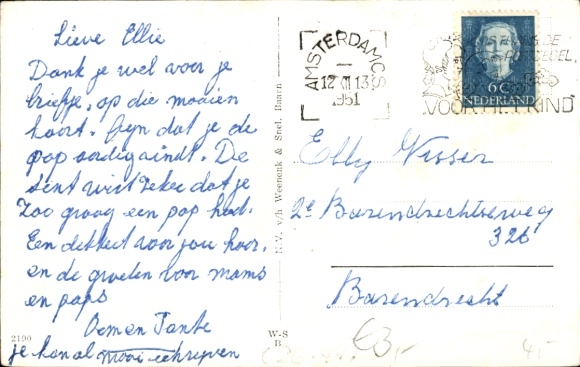 Lieve Ellie
Dank je wel voor je
briefje, op die mooien
koort. Fyn dat je de
pop aardig vindt. De
Sint wist zeker dat je
zoo graag een pop had.
Een dikkert voor jou hoor.
en de groeten voor mams
en paps
Oom en Tante
je kan al mooi schrijven
2190
N.V. v/h Weenenk & Snel, Baarn
W-S
B
AMSTERDAM CS
12 XII 13
1951
VOOR HET KIND
6 c
NEDERLAND
Elly Visser
2e Barendrechtseweg
326
Barendrecht
€3,-
4,-